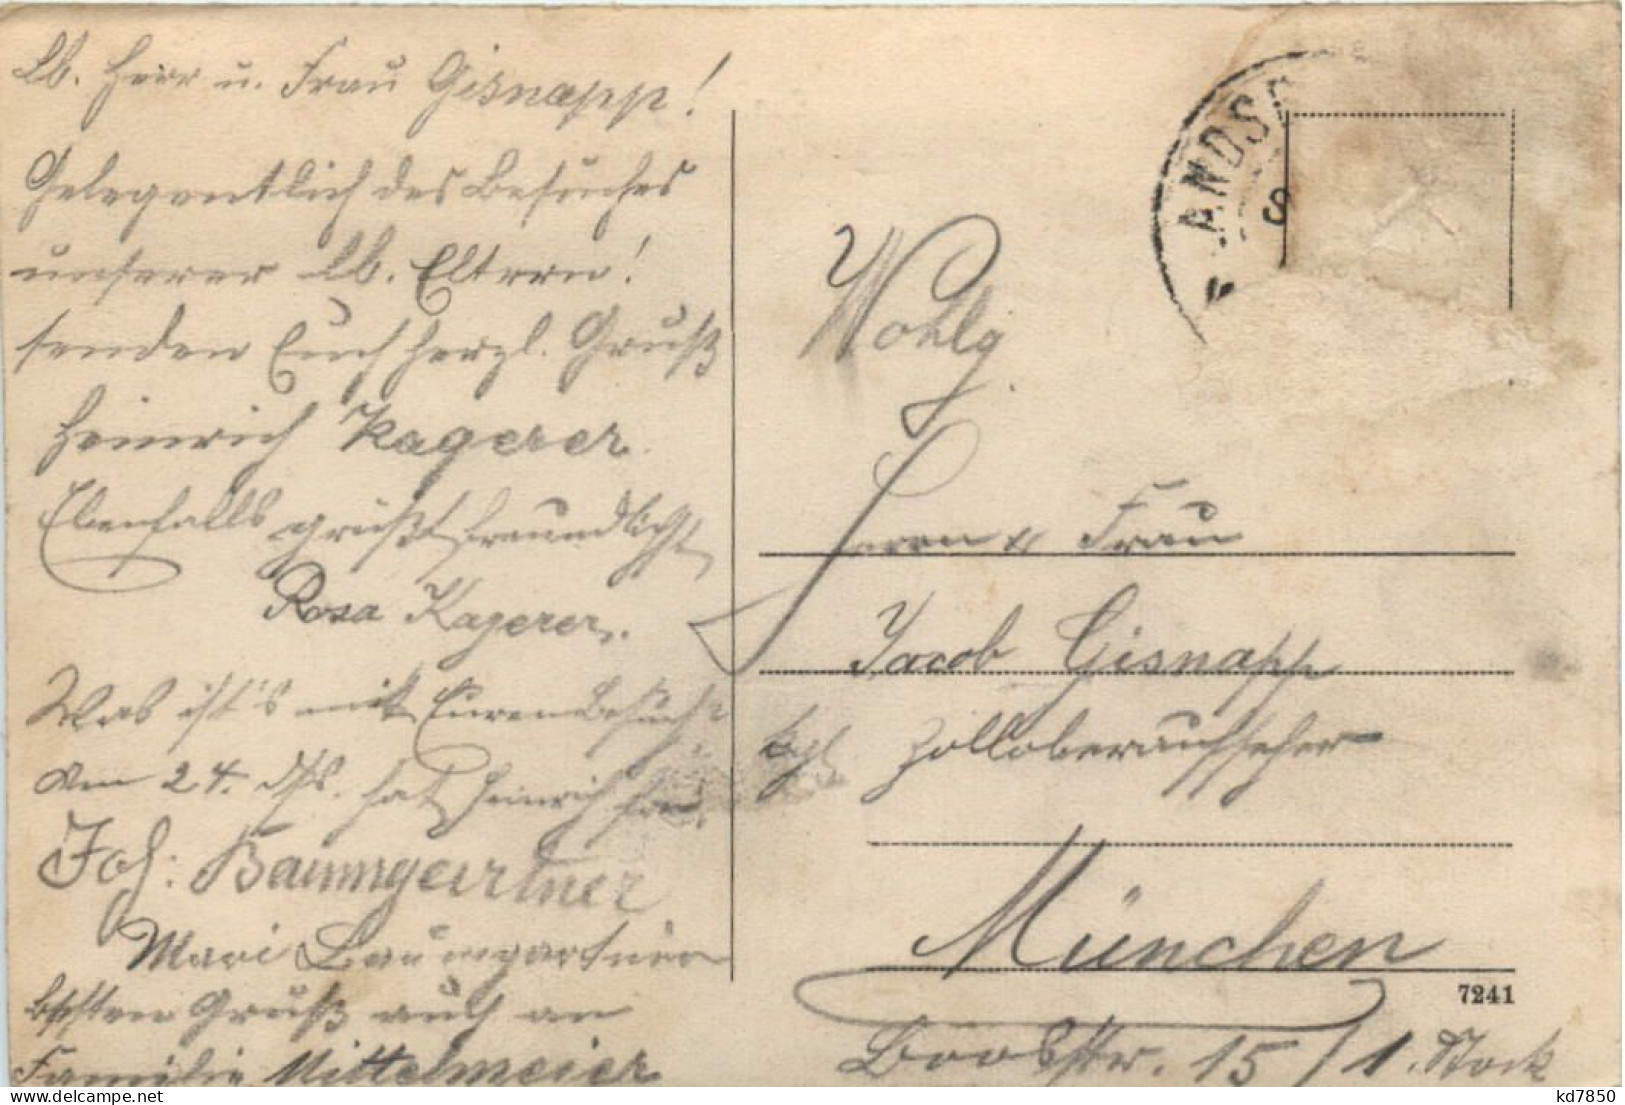 Lb. Herr u. Frau Gisnapp!
Gelegentlich des Besuches
unserer lb. Eltern!
senden Euch herzl. Gruß
Heinrich Kagerer.
Ebenfalls grüßt freundlichst
Rosa Kagerer.
Was ist's mit Euren Besuch?
Am 24. dss. hat Heinrich frei.
Joh: Baumgartner
Mari Baumgartner
besten Gruß auch an
Familie Mittelmeier
ANDS
S
Wohlg.
Herrn u Frau
Jacob Gisnapp
kgl Zolloberaufseher
München
7241
15/1. Stock
kd7850